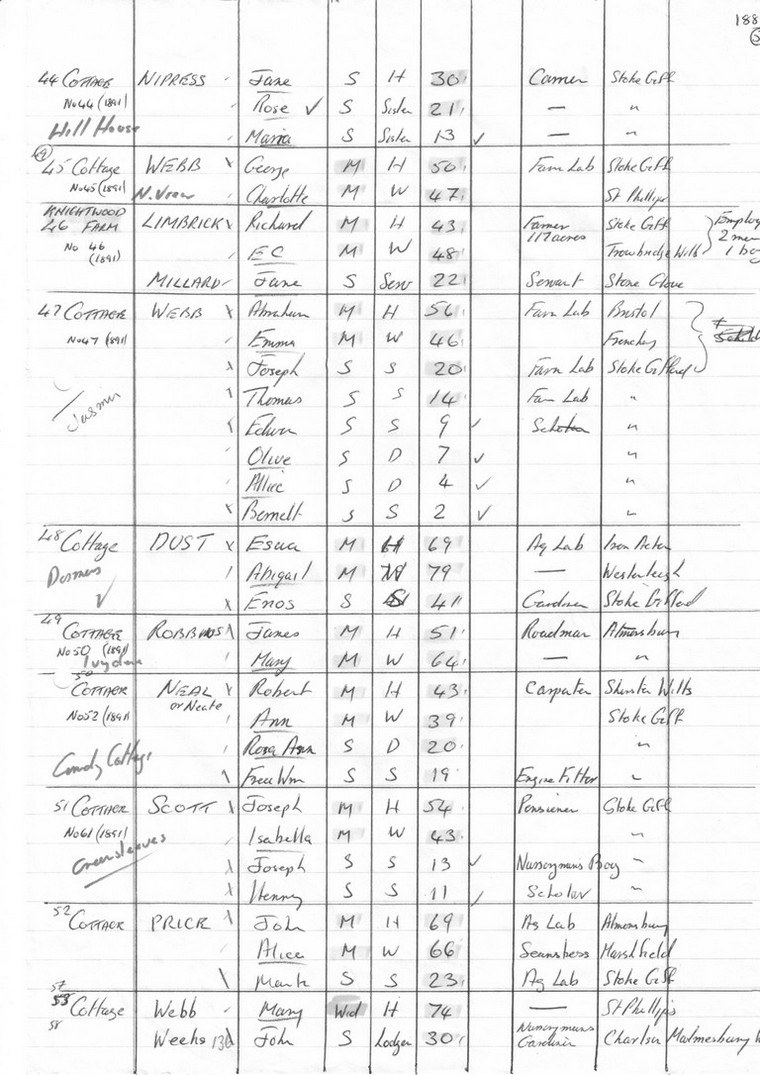 188
44 COTTAGE NIPRESS Jane S H 30 Carrier Stoke Giff
No 44 (1891) Rose ✓ S Sister 21 — "
Hill House Maria S Sister 13 ✓ — "
45 Cottage WEBB x George M H 50 Farm Lab Stoke Giff
No 45 (1891) N. View Charlotte M W 47 St Phillips
KNIGHTWOOD
46 FARM LIMBRICK x Richard M H 43 Farmer 117 acres Stoke Giff Employ 2 men
No 46 (1891) EC M W 48 Trowbridge Wilts 1 boy
MILLARD Jane S Serv 22 Servant Stone Glove
47 COTTAGE WEBB x Abraham M H 56 Farm Lab Bristol
No 47 (1891) Emma M W 46 Frenchay
x Joseph S S 20 Farm Lab Stoke Gifford
Thomas S S 14 Farm Lab "
Jasmin Edwin S S 9 ✓ "
Olive S D 7 ✓ "
Allice S D 4 ✓ "
x Bernett S S 2 ✓ "
48 Cottage DUST x Esua M H 69 Ag Lab Iron Acton
Abigail M W 79 — Westerleigh
✓ x Enos S S 41 Gardner Stoke Gifford
49 COTTAGE ROBBINS James M H 51 Roadman Almonsbury
No 50 (1891) Ivydene Mary M W 64 — "
50 COTTAGE NEAL x Robert M H 43 Carpater Wilts
or Neate
No 52 (1891) Ann M W 39 Stoke Giff
Rosa Ann S D 20 "
Cottage Wm S S 19 Engine Fitter "
51 COTTAGE SCOTT x Joseph M H 54 Pensioner Stoke Giff
No 61 (1891) Isabella M W 43 "
Greensleeves x Joseph S S 13 ✓ Nurserymans Boy "
x Henry S S 11 ✓ Scholar "
52 COTTAGE PRICE x John M H 69 Ag Lab Almonsbury
Alice M W 66 Seamstress Marshfield
Mark S S 23 Ag Lab Stoke Giff
57
53 Cottage Webb Mary Wid H 74 — St Phillips
58 Weeks John S Lodger 30 Nurserymans Gardener Malmesbury W